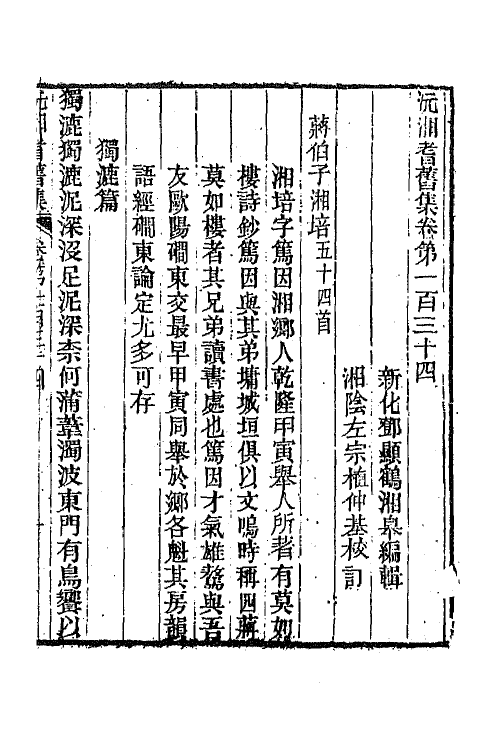 沅湘耆舊集卷第一百三十四
新化鄧顯鶴湘皋編輯
湘陰左宗植仲基校訂
蔣伯子湘培五十四首
湘培字篤因湘鄉人乾隆甲寅舉人所著有莫如
樓詩鈔篤因與其弟墉城垣俱以文鳴時稱四蔣
莫如樓者其兄弟讀書處也篤因才氣雄騖與吾
友歐陽磵東交最早甲寅同舉於鄉各魁其房韻
語經磵東論定尤多可存
獨漉篇
獨漉獨漉泥深沒足泥深柰何蒲葦濁波東門有鳥饗以